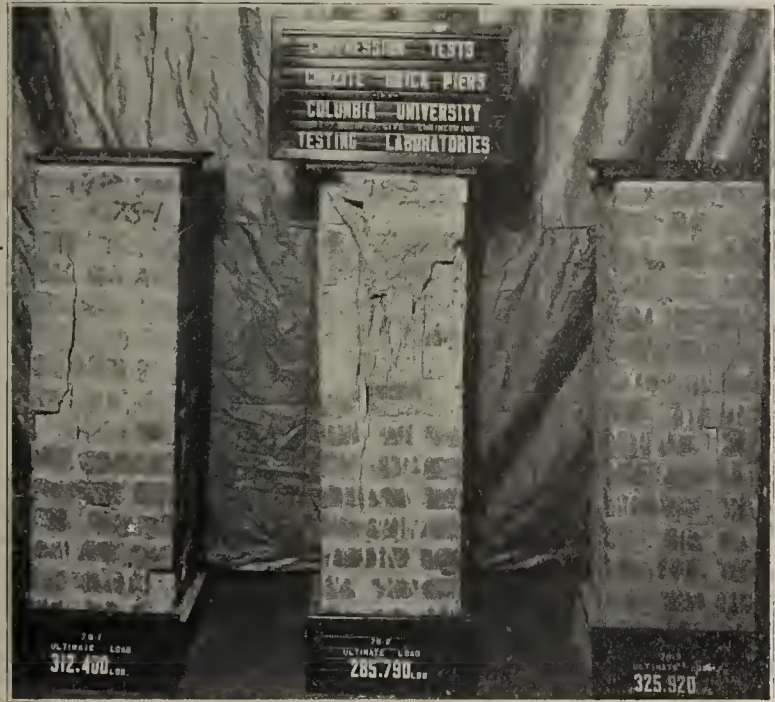 COMPRESSION TESTS
BRICK PIERS
COLUMBIA UNIVERSITY
CIVIL ENGINEERING
TESTING LABORATORIES
75-1
ULTIMATE LOAD
312.400 LBS.
ULTIMATE LOAD
285.790 LBS
ULTIMATE LOAD
325.920